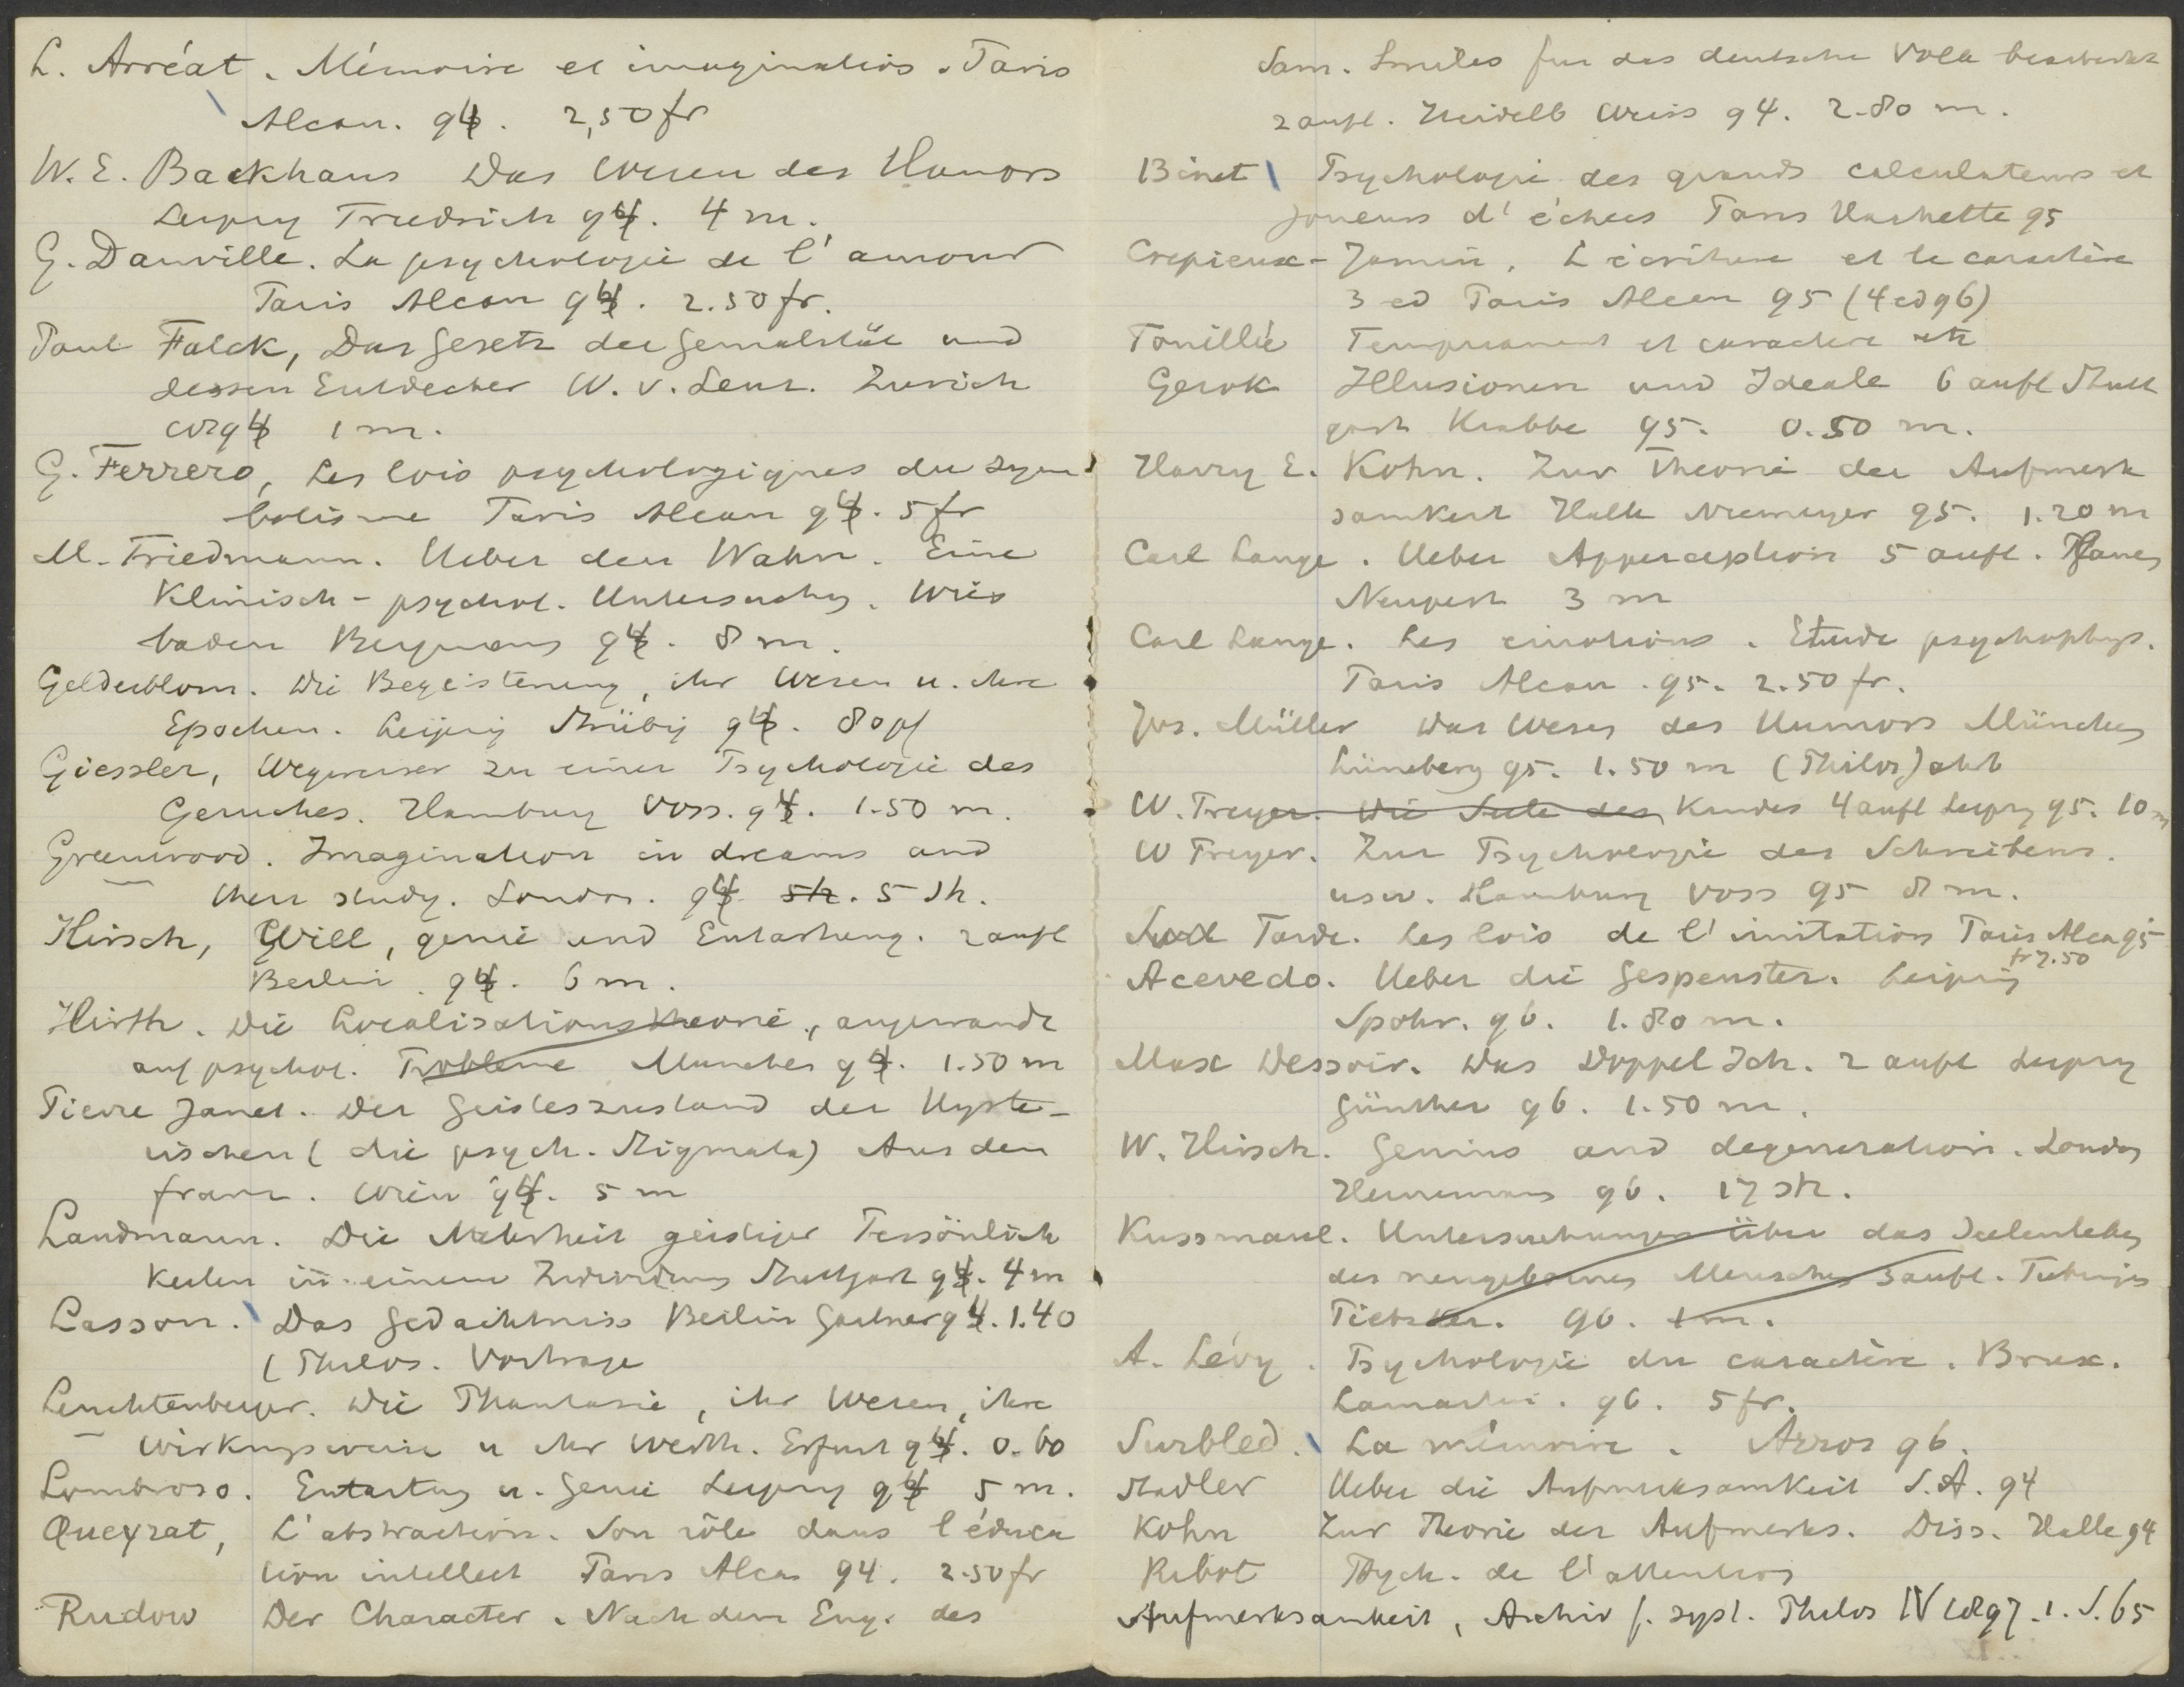 L. Arréat. Mémoire et imagination. Paris
Alcan. 94. 2,50 fr
W. E. Backhaus Das Wesen des Humors
Leipzig Friedrich 94. 4 m.
G. Danville. La psychologie de l'amour
Paris Alcan 94. 2.50 fr.
Paul Falck, Das Gesetz der Genialität und
dessen Entdecker W. v. Lenz. Zurich
94 1 m.
G. Ferrero, Les lois psychologiques du sym
bolisme Paris Alcan 94. 5 fr
M. Friedmann. Ueber den Wahn. Eine
Klinisch-psychol. Untersuchg. Wies
baden Bergmann 94. 8 m.
Gelderblom. Die Begeisterung, ihr Wesen u. ihre
Epochen. Leipzig Strübig 94. 80 pf
Giessler, Wegweiser zu einer Psychologie des
Geruches. Hamburg Voss. 94. 1.50 m.
Greenwood. Imagination in dreams and
their study. London. 94 sh. 5 sh.
Hirsch, Will, genie und Entartung. 2 aufl
Berlin. 94. 6 m.
Hirth. Die Localisationstheorie, angewandt
auf psychol. Probleme Munchen 94. 1.50 m
Pierre Janet. Der Geisteszustand der Hyste-
rischen (die psych. Stigmata) Aus dem
franz. Wien 94. 5 m
Landmann. Die Mehrheit geistiger Persönlich
keiten in einem Individuum Stuttgart 94. 4 m
Lasson. Das Gedachtniss Berlin Gartner 94. 1.40
(Philos. Vortrage
Leuchtenberger. Die Phantasie, ihr Wesen, ihre
Wirkungsweise u ihr Werth. Erfurt 94. 0.60
Lombroso. Entartung u. Genie Leipzig 94 5 m.
Queyrat, L'abstraction. Son rôle dans l'éduca
tion intellect Paris Alcan 94. 2.50 fr
Rudow Der Character. Nach dem Eng. des
Sam. Smiles fur das deutsche Volk bearbeitet
2 aufl. Heidelb Weiss 94. 2.80 m.
Binet Psychologie des grands calculateurs et
joueurs d'échecs Paris Hachette 95
Crepieux-Jamin, L'écriture et le caractère
3 ed Paris Alcan 95 (4 ed 96)
Fouillée Temperament et caractere etc
Gerok Illusionen und Ideale 6 aufl Stutt
gart Krabbe 95. 0.50 m.
Harry E. Kohn. Zur Theorie der Aufmerk
samkeit Halle Niemeyer 95. 1.20 m
Carl Lange. Ueber Apperception 5 aufl. Plauen
Neupert 3 m
Carl Lange. Les emotions. Etude psychophys.
Paris Alcan. 95. 2.50 fr.
Jos. Müller Das Wesen des Humors München
Lüneberg 95. 1.50 m (Philos Jahrb
W. Preyer. Die Seele des Kindes 4 aufl Leipzg 95. 10 m
W Preyer. Zur Psychologie des Schreibens.
usw. Hamburg Voss 95 8 m.
Tarde. Les lois de l'imitation Paris Alcan 95
fr 7.50
Acevedo. Ueber die Gespenster. Leipzig
Spohr. 96. 1.80 m.
Max Dessoir. Das Doppel Ich. 2 aufl Leipzg
Günther 96. 1.50 m.
W. Hirsch. Genius and degeneration. London
Heinemann 96. 17 sh.
Kussmaul. Untersuchungen über das Seelenleben
des neugebornen Menschen 3 aufl. Tubingen
Pietzker. 96. 1 m.
A. Lévy. Psychologie du caractère. Brux.
Lamartin. 96. 5 fr.
Surbled. La mémoire. Arras 96.
Stadler Ueber die Aufmerksamkeit S.A. 94
Kohn Zur Theorie der Aufmerks. Diss. Halle 94
Ribot Psych. de l'attention
Aufmerksamkeit, Archiv f. syst. Philos IV 1897. 1. S. 65